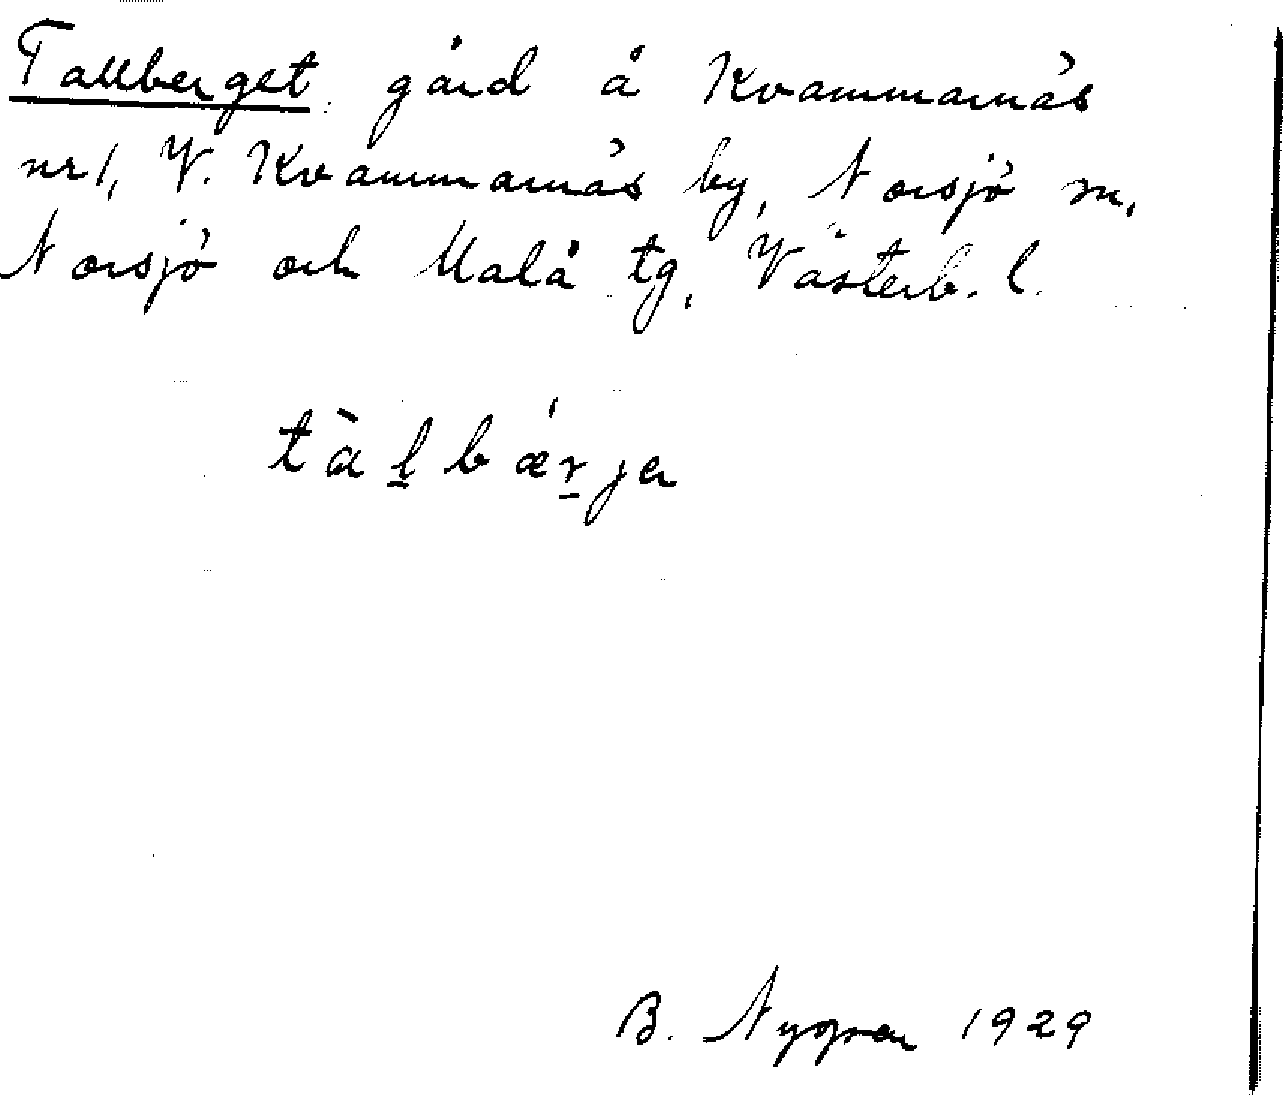 Tallberget gård å Kvammarnäs
nr 1, V. Kvammarnäs by, Norsjö sn,
Norsjö och Malå tg, Västerb. l.
tàl̲bǽr̲ja
B. Nygren 1929